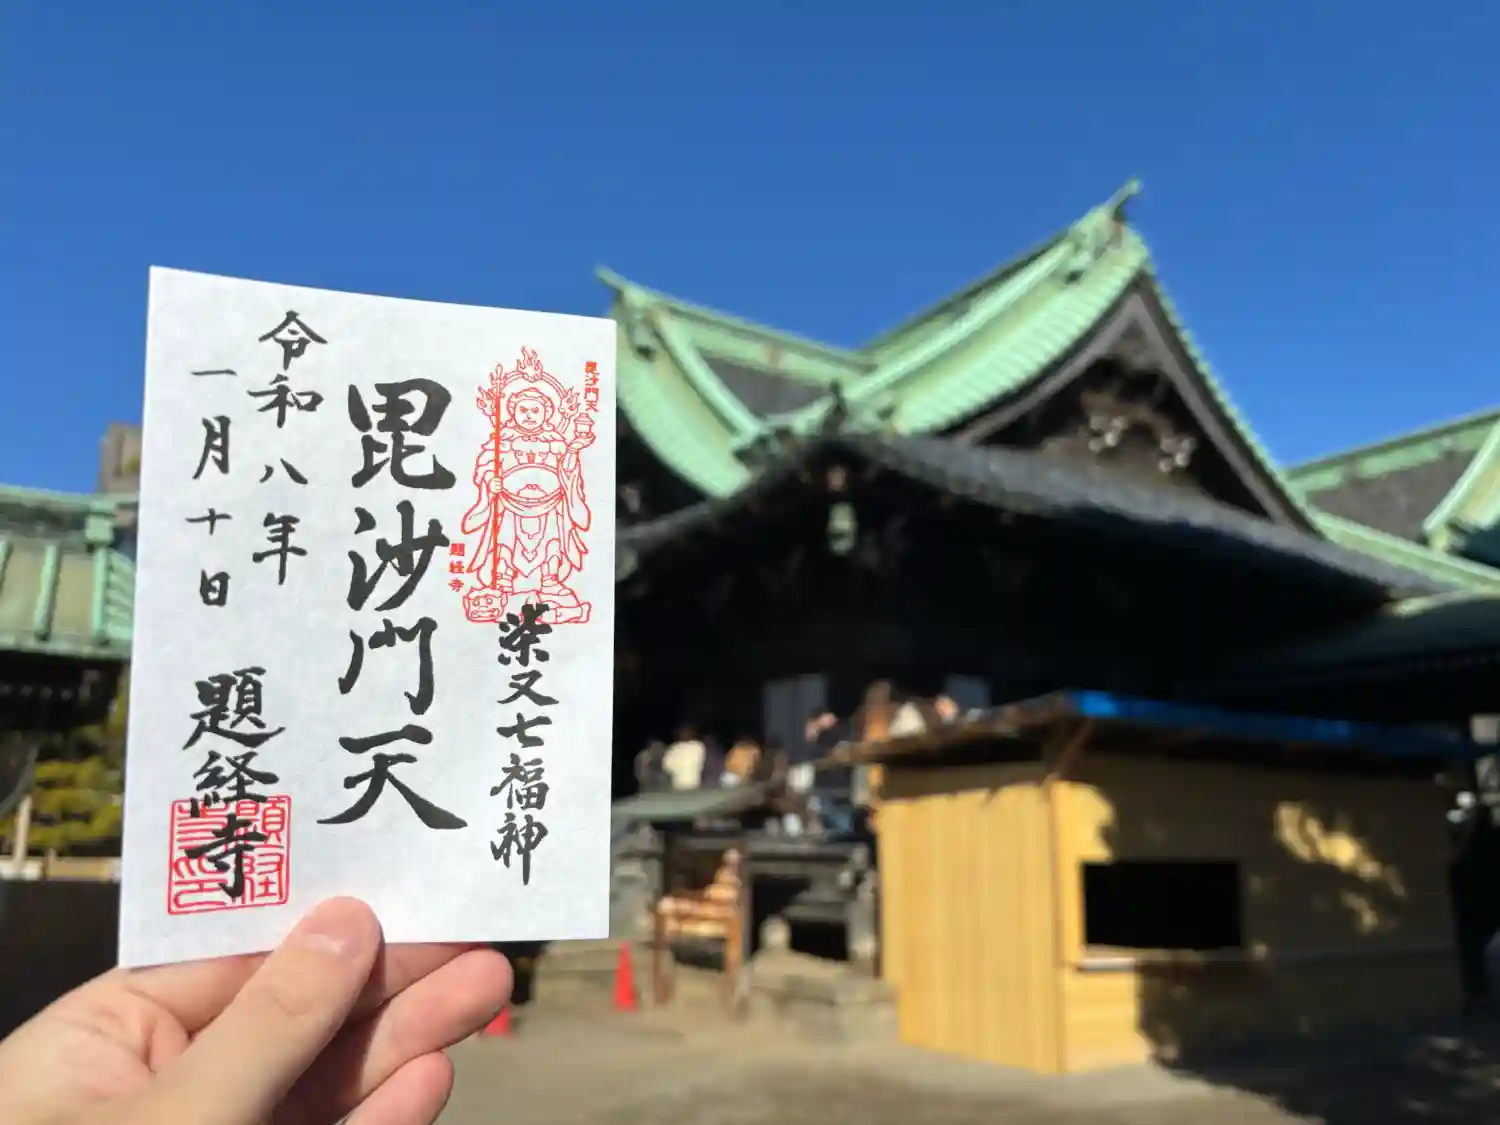 毘沙門天
題経寺
柴又七福神
毘沙門天
令和八年
一月十日
題経寺